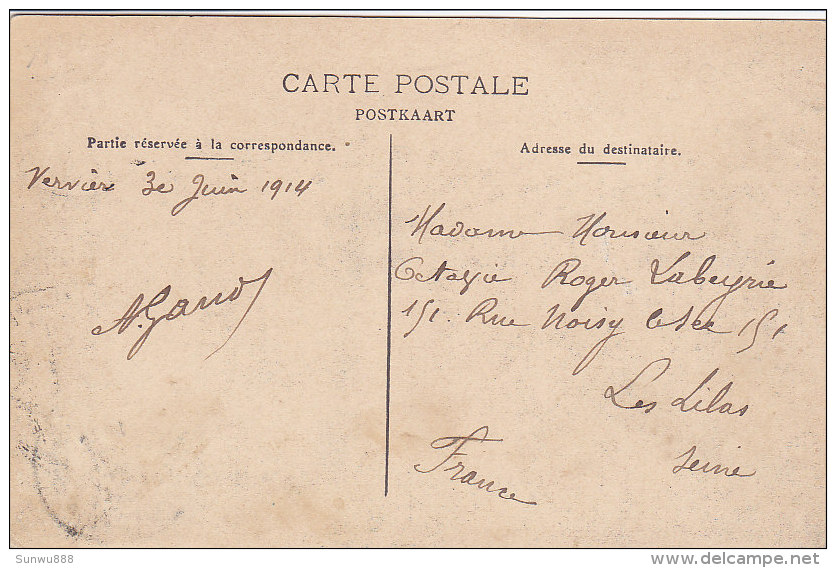 CARTE POSTALE
POSTKAART
Partie réservée à la correspondance.
Vervier 3e Juin 1914
Adresse du destinataire.
Madame Monsieur
Octavie Roger Labeyrie
151. Rue Noisy le Sec 151
Les Lilas
Seine
France
Sunwu888
www.delcampe.net